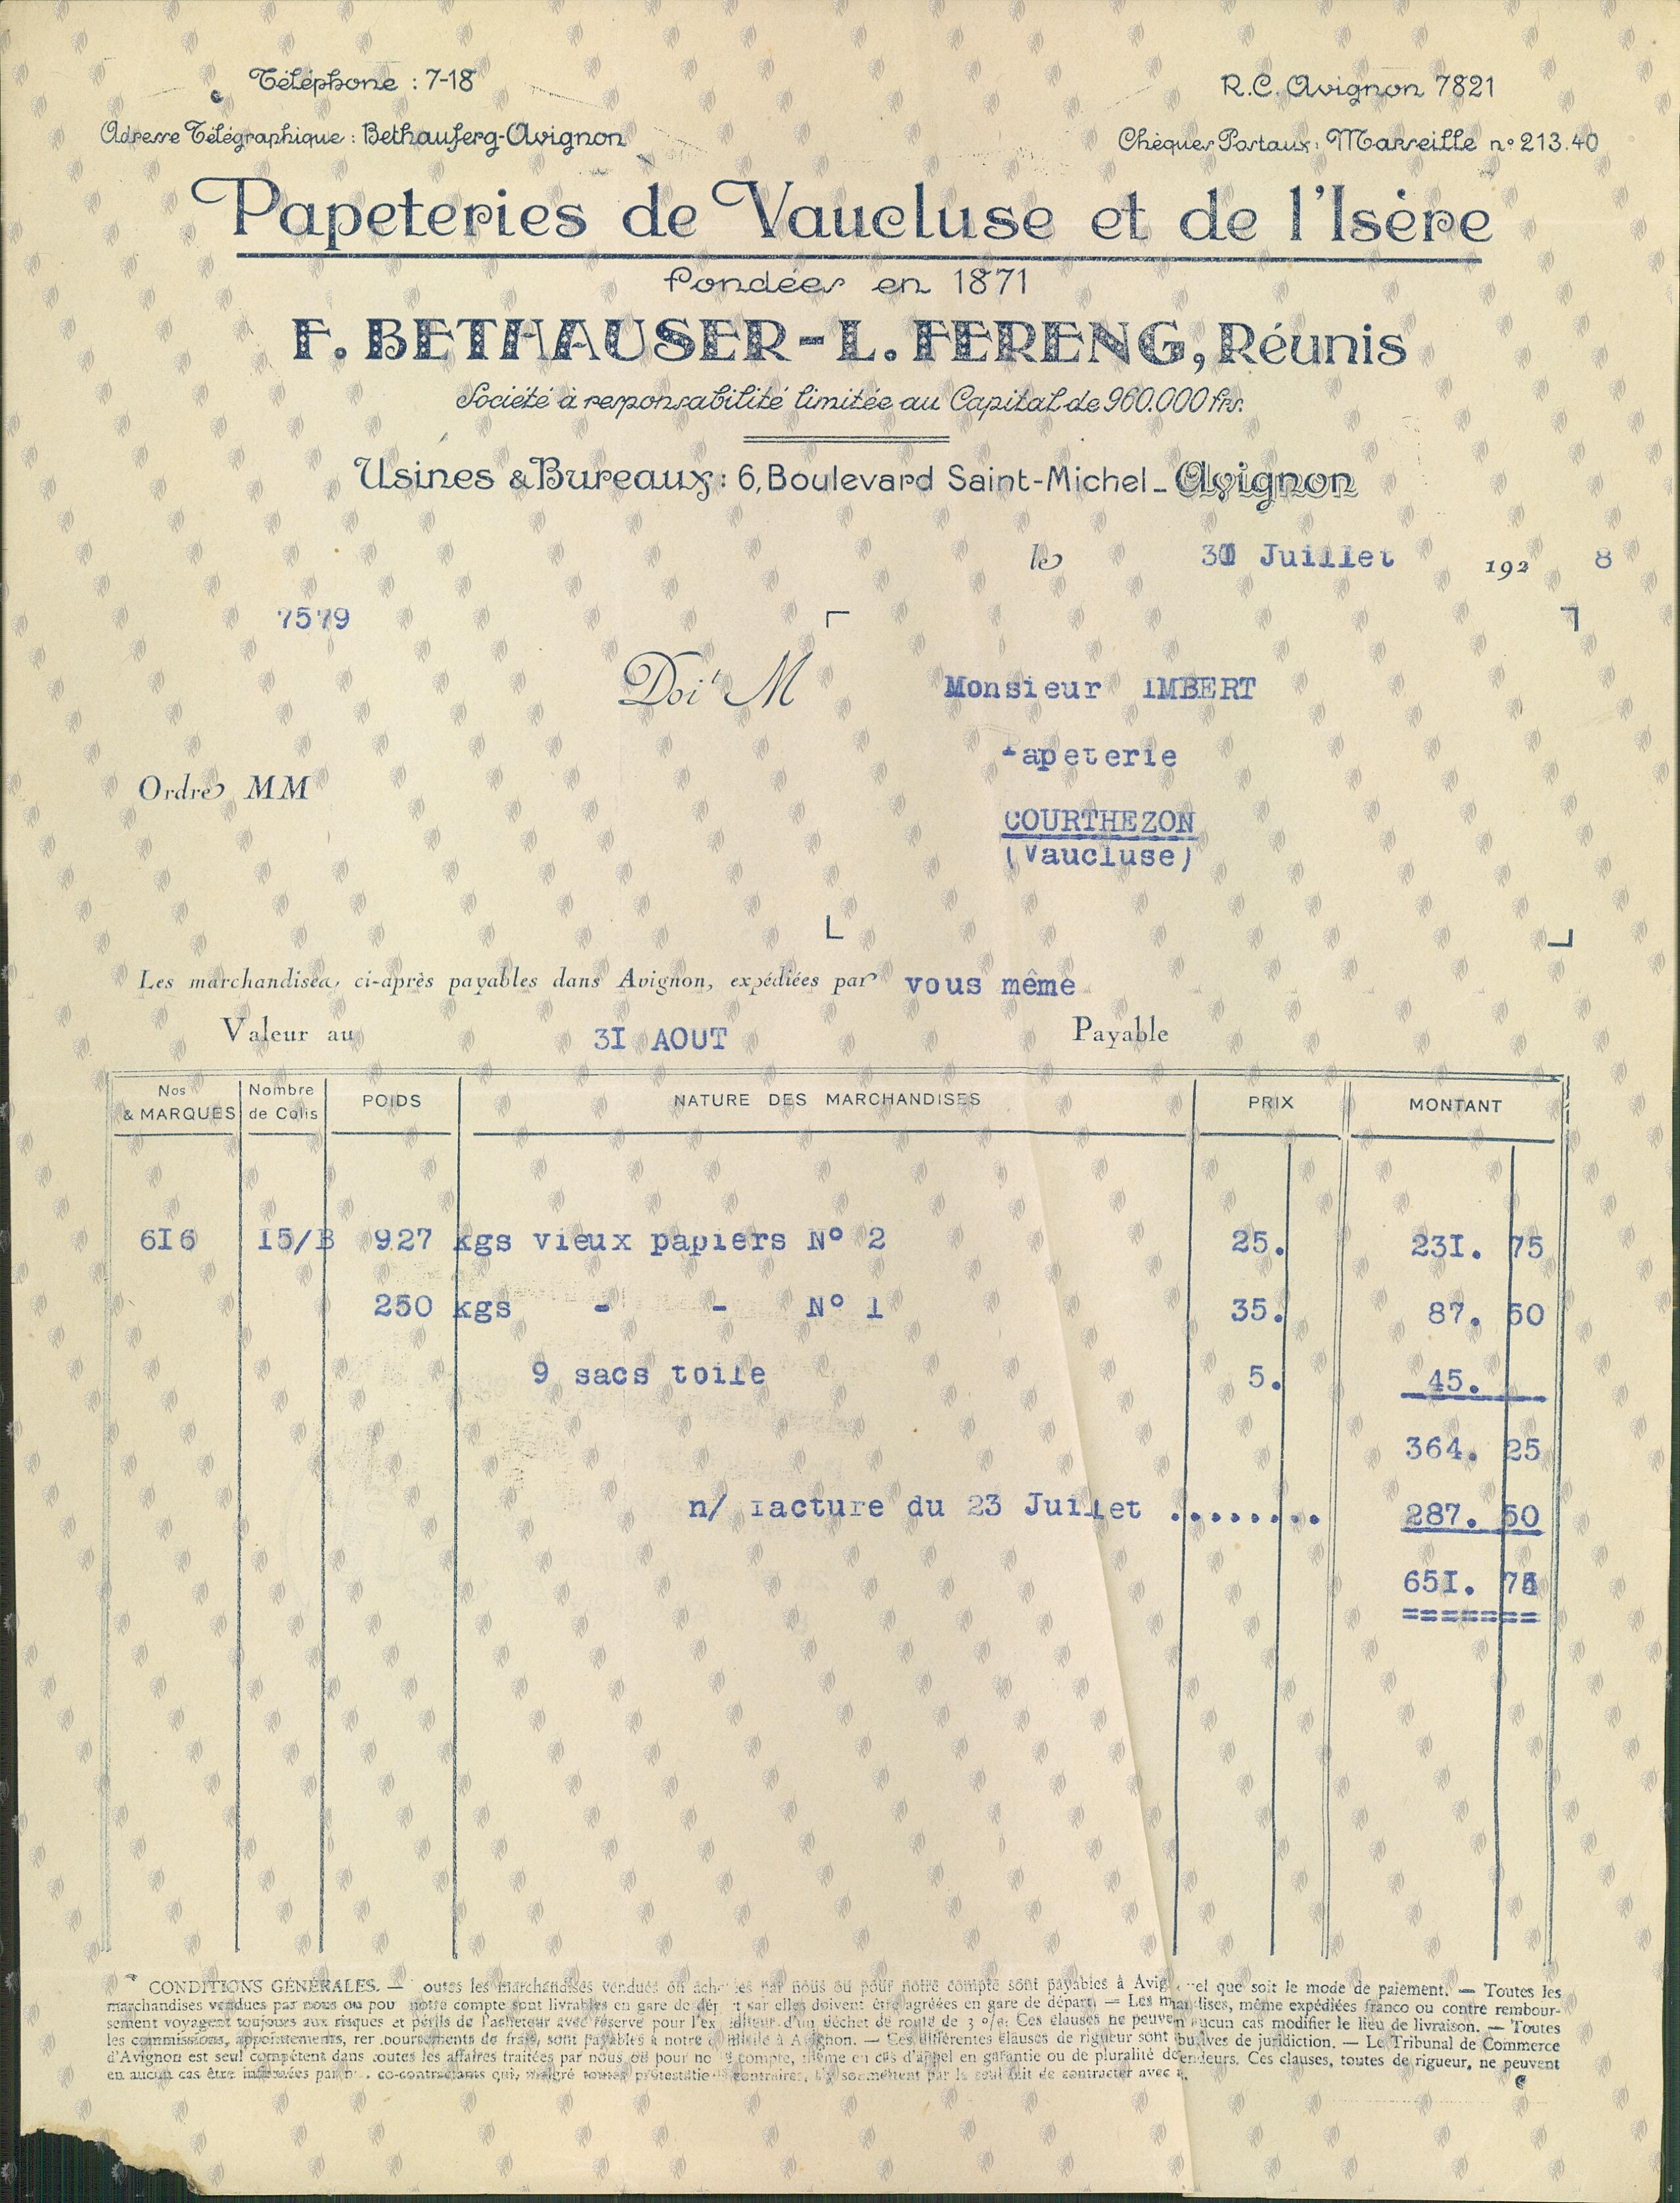 Téléphone : 7-18
R.C. Avignon 7821
Adresse Télégraphique : Bethauferg-Avignon
Chèques Postaux : Marseille n° 213.40
Papeteries de Vaucluse et de l'Isère
fondées en 1871
F. BETHAUSER - L. FERENG, Réunis
Société à responsabilité limitée au Capital de 960.000 frs.
Usines & Bureaux : 6, Boulevard Saint-Michel - Avignon
le 30 Juillet 192 8
7579
Doit M Monsieur IMBERT
Papeterie
Ordre MM
COURTHEZON
(Vaucluse)
Les marchandises ci-après payables dans Avignon, expédiées par vous même
Valeur au 3I AOUT Payable
Nos & MARQUES Nombre de Colis POIDS NATURE DES MARCHANDISES PRIX MONTANT
6I6 15/B 927 kgs vieux papiers N° 2 25. 23I. 75
250 kgs - - N° 1 35. 87. 50
9 sacs toile 5. 45.
364. 25
n/ facture du 23 Juillet ........ 287. 50
65I. 75
=======
CONDITIONS GÉNÉRALES. — outes les marchandises vendues ou par nous ou pour notre compte sont payables à que soit le mode de paiement. — Toutes les
marchandises vendues par nous ou pou notre compte sont livrables en gare de car elles doivent être agréées en gare de départ. — Les même expédiées franco ou contre rembour-
sement voyagent toujours aux risques et périls de l'acheteur avec réserve pour d'un déchet de route de 3 o/o. Ces clauses ne peuven aucun cas modifier le lieu de livraison. — Toutes
les commissions, appointements, de frais, sont payables à notre à Avignon. — Ces différentes clauses de rigueur sont de juridiction. — Le Tribunal de Commerce
d'Avignon est seul compétent dans toutes les affaires traitées par nous ou pour compte, même en cas d'appel en garantie ou de pluralité Ces clauses, toutes de rigueur, ne peuvent
en aucun cas être par co-contractants qui, malgré toutes par le seul fait de contracter avec